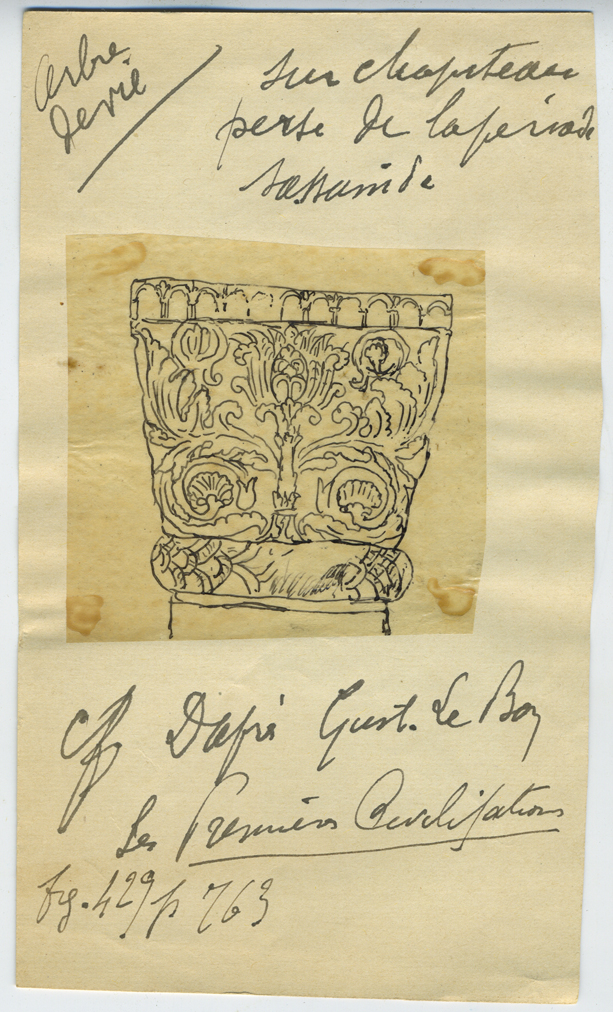 arbre
de vie
sur chapiteau
perse de la période
sassanide
cf D'après Gust. Le Bon
Les Premières Civilisations
fig. 429 p 763